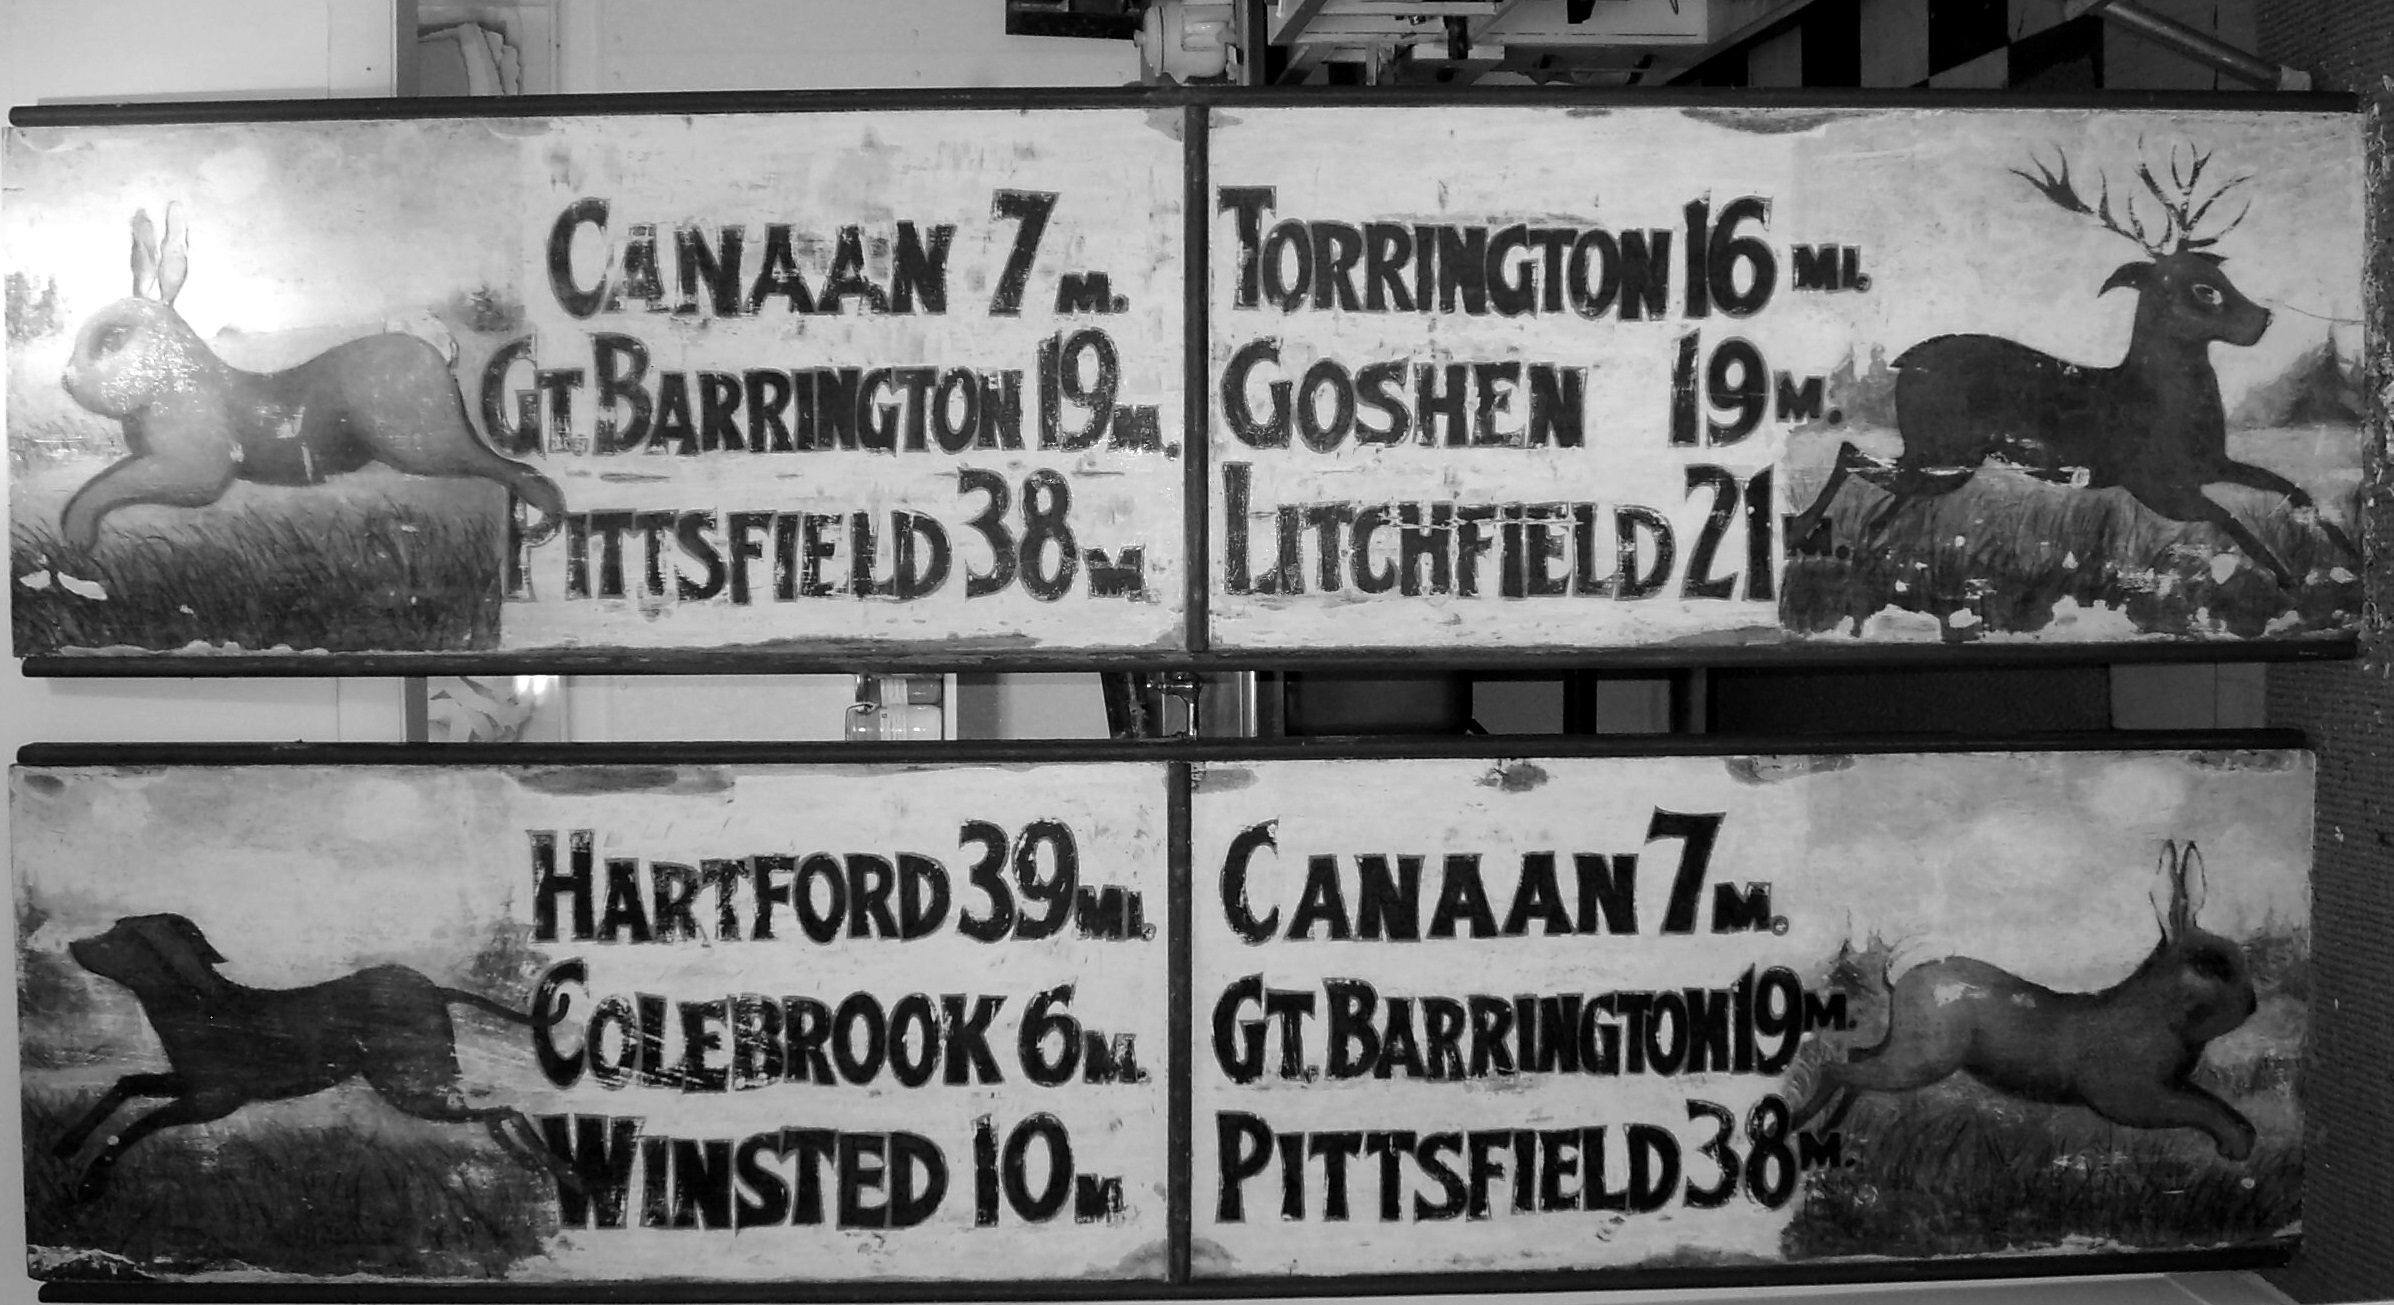 CANAAN 7 M.
GT. BARRINGTON 19 M.
PITTSFIELD 38 M
TORRINGTON 16 MI.
GOSHEN 19 M.
LITCHFIELD 21 M.
HARTFORD 39 MI.
COLEBROOK 6 M.
WINSTED 10 M
CANAAN 7 M.
GT. BARRINGTON 19 M.
PITTSFIELD 38 M.